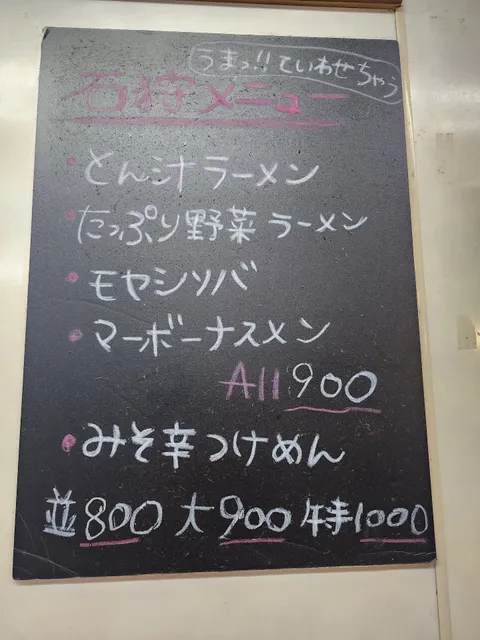 うまっ!!ていわせちゃう
石狩メニュー
・とん汁ラーメン
・たっぷり野菜ラーメン
・モヤシソバ
・マーボーナスメン
All 900
・みそ辛つけめん
並800 大900 特1000